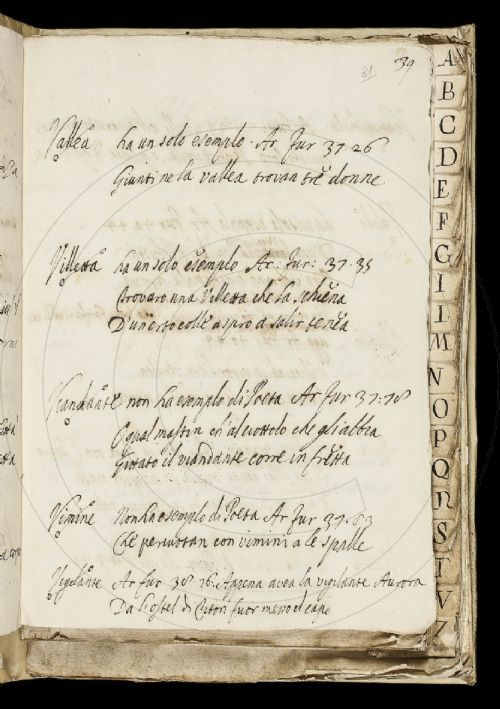 31 39
Vallea ha un solo esempio Ar Fur 37. 26
Giunti ne la vallea trovan tre donne
Villetta ha un solo esempio Ar: Fur: 37. 35
trovaro una villetta che la schena
D'un erto colle aspro a salir tenea
Viandante non ha esempio di Poeta Ar Fur 37:78
O qual mastin ch'al ciottolo che gli abbia
Gittato il viandante corre in fretta
Vimine Non ha esempio di Poeta Ar Fur 37. 83
Che percuotan con vimini a le spalle
Vigilante Ar fur 38 76. Appena avea la vigilante Aurora
Da l'ostel di Titon fuor messo il capo
A
B
C
D
E
F
G
I
L
M
N
O
P
Q
R
S
T
V
Z